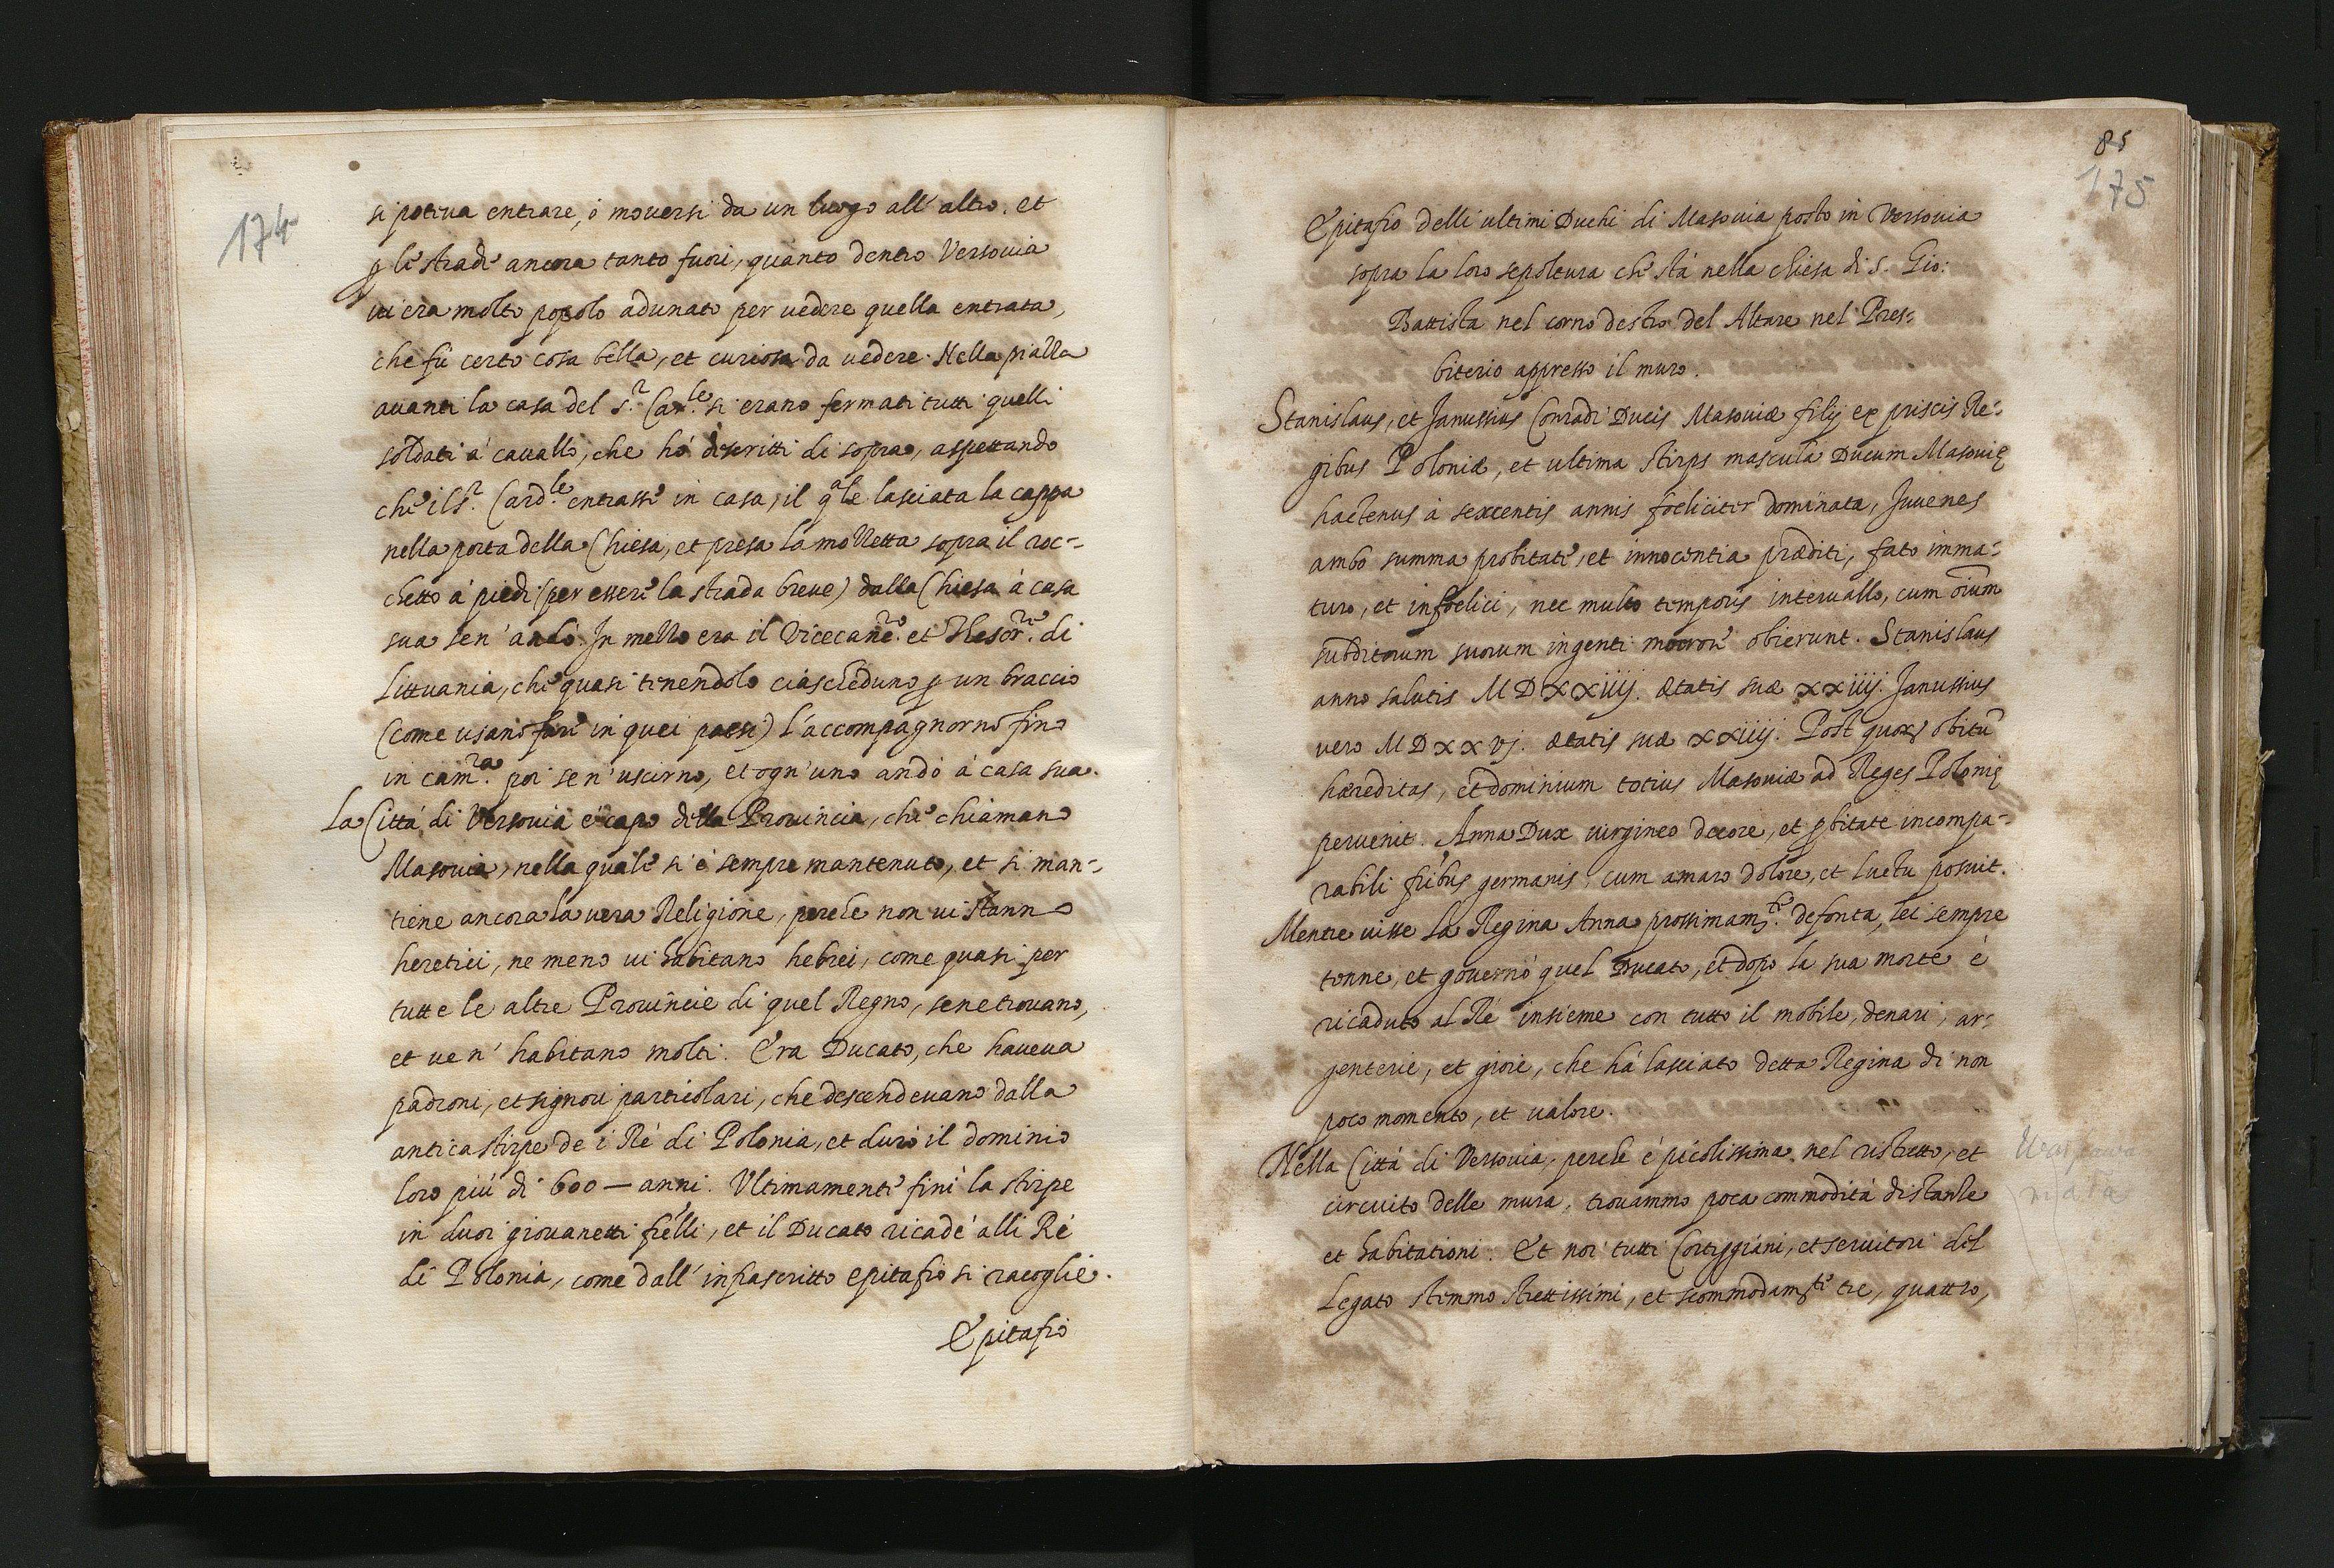 174
si poteua entrare, ò mouersi da un luogo all'altro. et
p le strade ancora tanto fuori, quanto dentro Versouia
ui era molto popolo adunato per uedere quella entrata,
che fù certo cosa bella, et curiosa da uedere. Nella piazza
auanti la casa del s.r Car.le si erano fermati tutti quelli
soldati à cauallo, che hò descritti di sopra, aspettando
che il s.r Card.le entrasse in casa, il qale lasciata la cappa
nella porta della Chiesa, et presa la mozzetta sopra il roc-
chetto à piedi (per essere la strada breue) dalla Chiesa à casa
sua sen'andò. In mezzo era il Vicecane.ro et Thesor.re di
Littuania, che quasi tenendolo ciascheduno p un braccio
(come usano fare in quei paesi) l'accompagnorno fino
in cam.ra poi se n'uscirno, et ogn'uno andò à casa sua.
La Città di Versouia è capo della Prouincia, che chiamano
Masouia, nella quale si è sempre mantenuto, et si man-
tiene ancora la uera Religione, perche non ui stanno
heretici, ne meno ui habitano hebrei, come quasi per
tutte le altre Prouincie di quel Regno, sene trouano,
et ue n'habitano molti. Era Ducato, che haueua
padroni, et signori particolari, che descendeuano dalla
antica stirpe de i Rè di Polonia, et durò il dominio
loro più di 600 — anni. Ultimamente finì la stirpe
in duoi giouanetti frelli, et il Ducato ricadè alli Rè
di Polonia, come dall'infrascritto epitafio si racoglie.
Epitafio
85
175
Epitafio delli ultimi Duchi di Masouia posto in Versouia
sopra la loro sepoltura che stà nella chiesa di S. Gio:
Battista nel corno destro del Altare nel Pres-
biterio appresso il muro.
Stanislaus, et Janussius Conradi Ducis Masouiæ filij ex priscis Re-
gibus Poloniæ, et ultima stirps mascula Ducum Masouię
hactenus à sexcentis annis foeliciter dominata, Juuenes
ambo summa probitate, et innocentia præditi, fato imma-
turo, et infoelici, nec multo temporis interuallo, cum oium
subditorum suorum ingenti moerore obierunt. Stanislaus
anno salutis MDXXIIIJ. ætatis suæ XXIIIJ. Janussius
uero MDXXVJ. ætatis suæ XXIIIJ. Post quorum obitū
hæreditas, et dominium totius Masouiæ ad Reges Polonię
peruenit. Anna Dux uirgineo decore, et pbitate incompa-
rabili fribus germanis, cum amaro dolore, et luctu posuit.
Mentre uisse la Regina Anna prossimam.te defonta, lei sempre
tenne, et gouernò quel Ducato, et dopo la sua morte è
ricaduto al Rè insieme con tutto il mobile, denari, ar-
genterie, et gioie, che hà lasciato detta Regina di non
poco momento, et ualore.
Nella Città di Versouia, perche è picolissima nel ristretto, et
circuito delle mura, trouammo poca commodità di stanze
et habitationi. Et noi tutti Cortiggiani, et seruitori del
Legato stemmo strettissimi, et scommodam.te tre, quattro,
Warszawa
mała